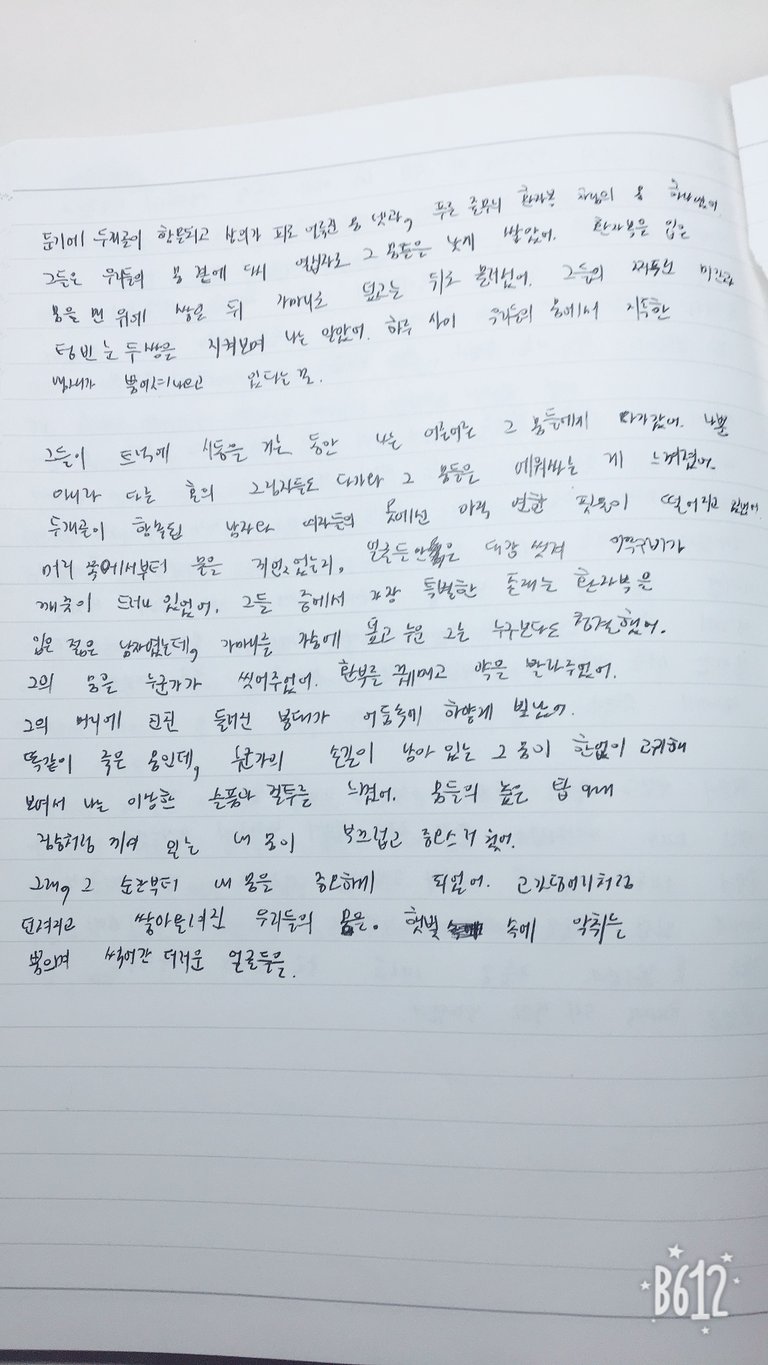 둔기에 두개골이 함몰되고 상의가 피로 어룩진 몸 넷과, 푸른 줄무늬 환자복 차림의 몸 하나였어.
그들은 우리들의 몸 곁에 다시 열십자로 그 몸들을 낮게 쌓았어. 환자복을 입은
몸을 맨 위에 쌓은 뒤 가마니로 덮고는 뒤로 물러섰어. 그들의 찌푸린 미간과
텅 빈 눈 두 쌍을 지켜보며 나는 알았어. 하루 사이 우리들의 몸에서 지독한
냄새가 뿜어져나오고 있다는 걸.
그들이 트럭에 시동을 거는 동안 나는 어른어른 그 몸들에게 다가갔어. 나뿐
아니라 다른 혼의 그림자들도 다가와 그 몸들을 에워싸는 게 느껴졌어.
두개골이 함몰된 남자와 여자들의 옷에선 아직 연한 핏물이 떨어지고 있었어.
머리 쪽에서부터 물을 끼얹었는지, 얼굴들만은 대강 씻겨 이목구비가
깨끗이 드러나 있었어. 그들 중에서 가장 특별한 존재는 환자복을
입은 젊은 남자였는데, 가마니를 가슴에 덮고 누운 그는 누구보다도 청결했어.
그의 몸을 누군가가 씻어주었어. 환부를 꿰매고 약을 발라주었어.
그의 머리에 친친 둘러진 붕대가 어둠속에 하얗게 빛났어.
똑같이 죽은 몸인데, 누군가의 손길이 남아 있는 그 몸이 한없이 고귀해
보여서 나는 이상한 슬픔과 질투를 느꼈어. 몸들의 높은 탑 아래
짐승처럼 끼여 있는 내 몸이 부끄럽고 증오스러웠어.
그래, 그 순간부터 내 몸을 증오하게 되었어. 고깃덩어리처럼
던져지고 쌓아올려진 우리들의 몸을. 햇빛 속에 악취를
뿜으며 썩어간 더러운 얼굴들을.
B612